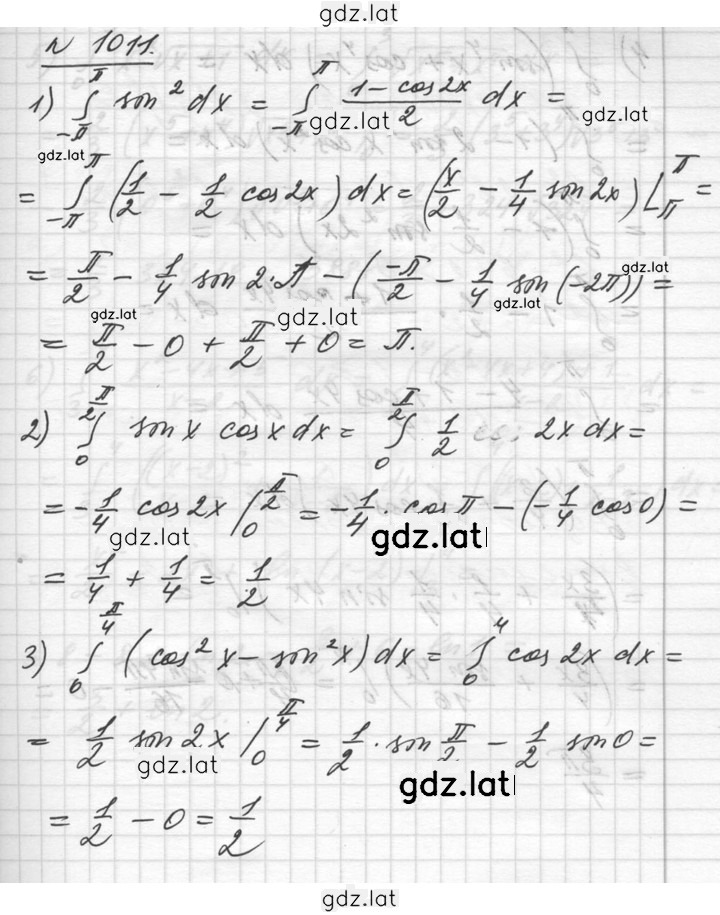 gdz.lat
N 1011.
1) ∫_{-π}^{π} sin² dx = ∫_{-π}^{π} (1 - cos2x)/2 dx =
gdz.lat gdz.lat gdz.lat
= ∫_{-π}^{π} (1/2 - 1/2 cos2x) dx = (x/2 - 1/4 sin2x) |_{-π}^{π} =
= π/2 - 1/4 sin2·π - (-π/2 - 1/4 sin(-2π)) =
gdz.lat gdz.lat gdz.lat gdz.lat
= π/2 - 0 + π/2 + 0 = π.
2) ∫_{0}^{π/2} sinx cosx dx = ∫_{0}^{π/2} 1/2 2x dx =
= -1/4 cos2x |_{0}^{π/2} = -1/4 · cosπ - (-1/4 cos0) =
gdz.lat gdz.lat
= 1/4 + 1/4 = 1/2
3) ∫_{0}^{π/4} (cos²x - sin²x) dx = ∫_{0}^{4} cos2x dx =
= 1/2 sin2x |_{0}^{π/4} = 1/2 · sin π/2 - 1/2 sin0 =
gdz.lat gdz.lat
= 1/2 - 0 = 1/2
gdz.lat